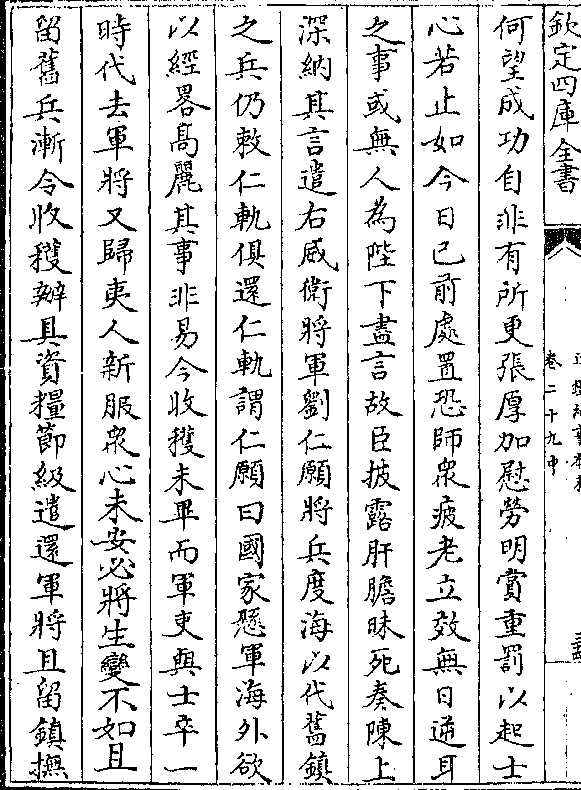 欽定四庫全書
卷二十九中
何望成功自非有所更張厚加慰勞明賞重罰以起士
心若止如今日已前處置恐師衆疲老立效無日逆耳
之事或無人為陛下盡言故臣披露肝膽昧死奏陳上
深納其言遣右威衛將軍劉仁願將兵度海以代舊鎮
之兵仍敕仁軌俱還仁軌謂仁願曰國家懸軍海外欲
以經畧高麗其事非易今收穫未畢而軍吏與士卒一
時代去軍將又歸夷人新服衆心未安必將生變不如且
留舊兵漸令收穫辦具資糧節級遣還軍將且留鎮撫